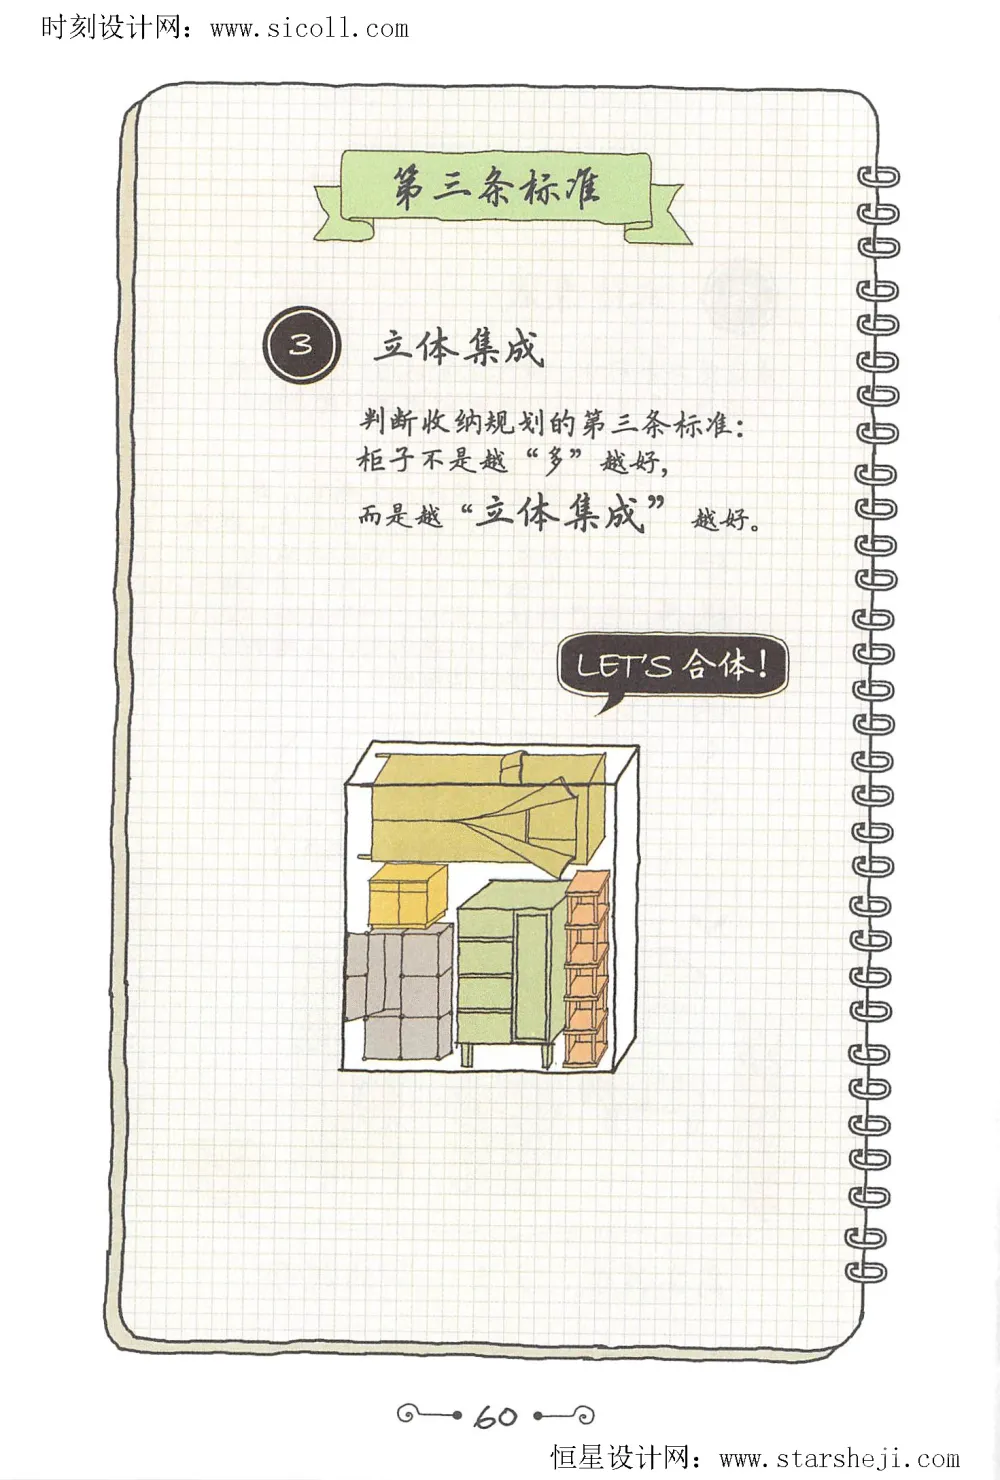 时刻设计网：www.sicoll.com
第三条标准
3 立体集成
判断收纳规划的第三条标准：
柜子不是越“多”越好，
而是越“立体集成”越好。
LET'S 合体！
60
恒星设计网：www.starsheji.com